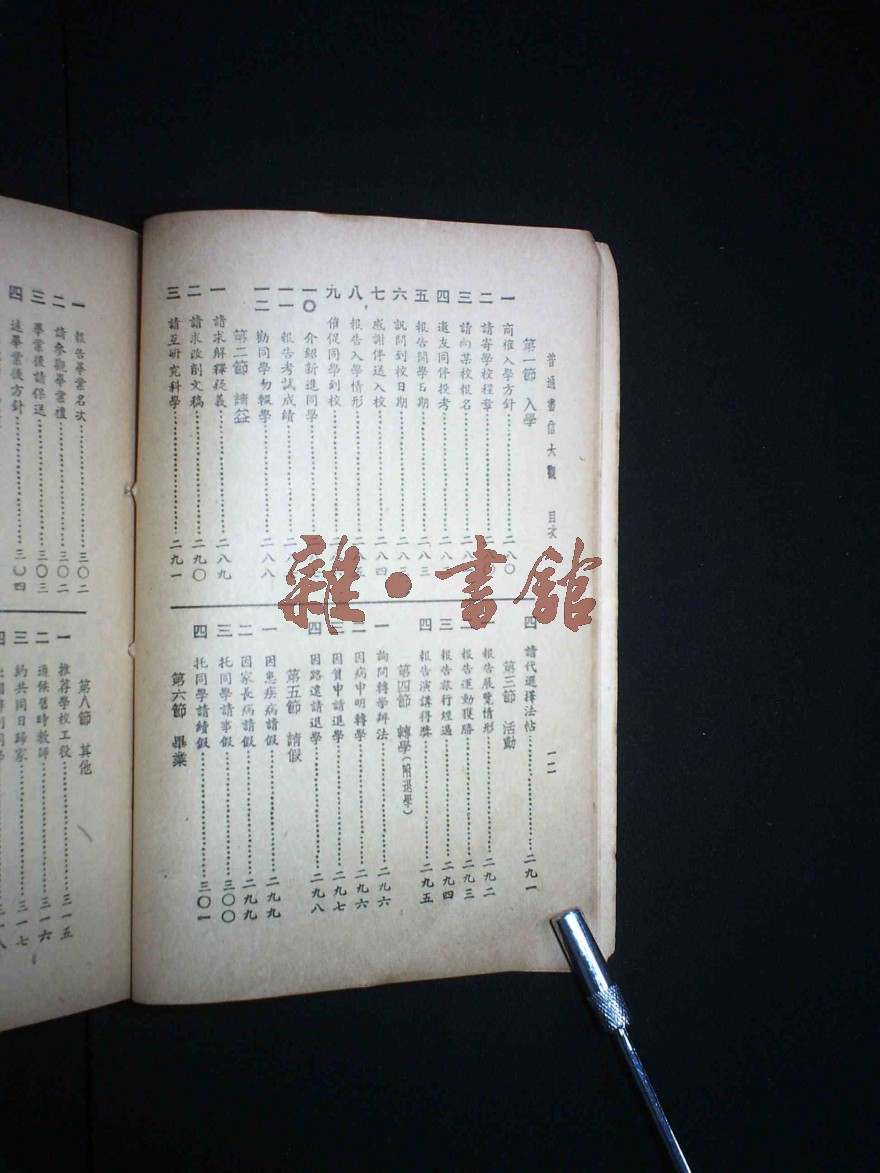 普通書信大觀 目次
一二
第一節 入學
一 商榷入學方針 二八〇
二 請寄學校程章
三 請向某校報名
四 邀友同伴投考
五 報告開學日期 二八三
六 訊問到校日期
七 感謝伴送入校 二八四
八 報告入學情形
九 催促同學到校
一〇 介紹新進同學
一一 報告考試成績
一二 勸同學勿輟學 二八八
第二節 請益
一 請求解釋疑義 二八九
二 請求改削文稿 二九〇
三 請互研究科學 二九一
四 請代選擇法帖 二九一
第三節 活動
一 報告展覽情形 二九二
二 報告運動獲勝 二九三
三 報告旅行經過 二九四
四 報告演講得獎 二九五
第四節 轉學(附退學)
一 詢問轉學辦法 二九六
二 因病申明轉學 二九六
三 因貧申請退學 二九七
四 因路遠請退學 二九八
第五節 請假
一 因患疾病請假 二九九
二 因家長病請假 二九九
三 托同學請事假 三〇〇
四 托同學請續假 三〇一
第六節 畢業
一 報告畢業名次 三〇二
二 請參觀畢業禮 三〇二
三 畢業後請保送 三〇三
四 述畢業後方針 三〇四
第八節 其他
一 推荐學校工役 三一五
二 過候舊時教師 三一六
三 約共同日歸家 三一七
四
雜·書館